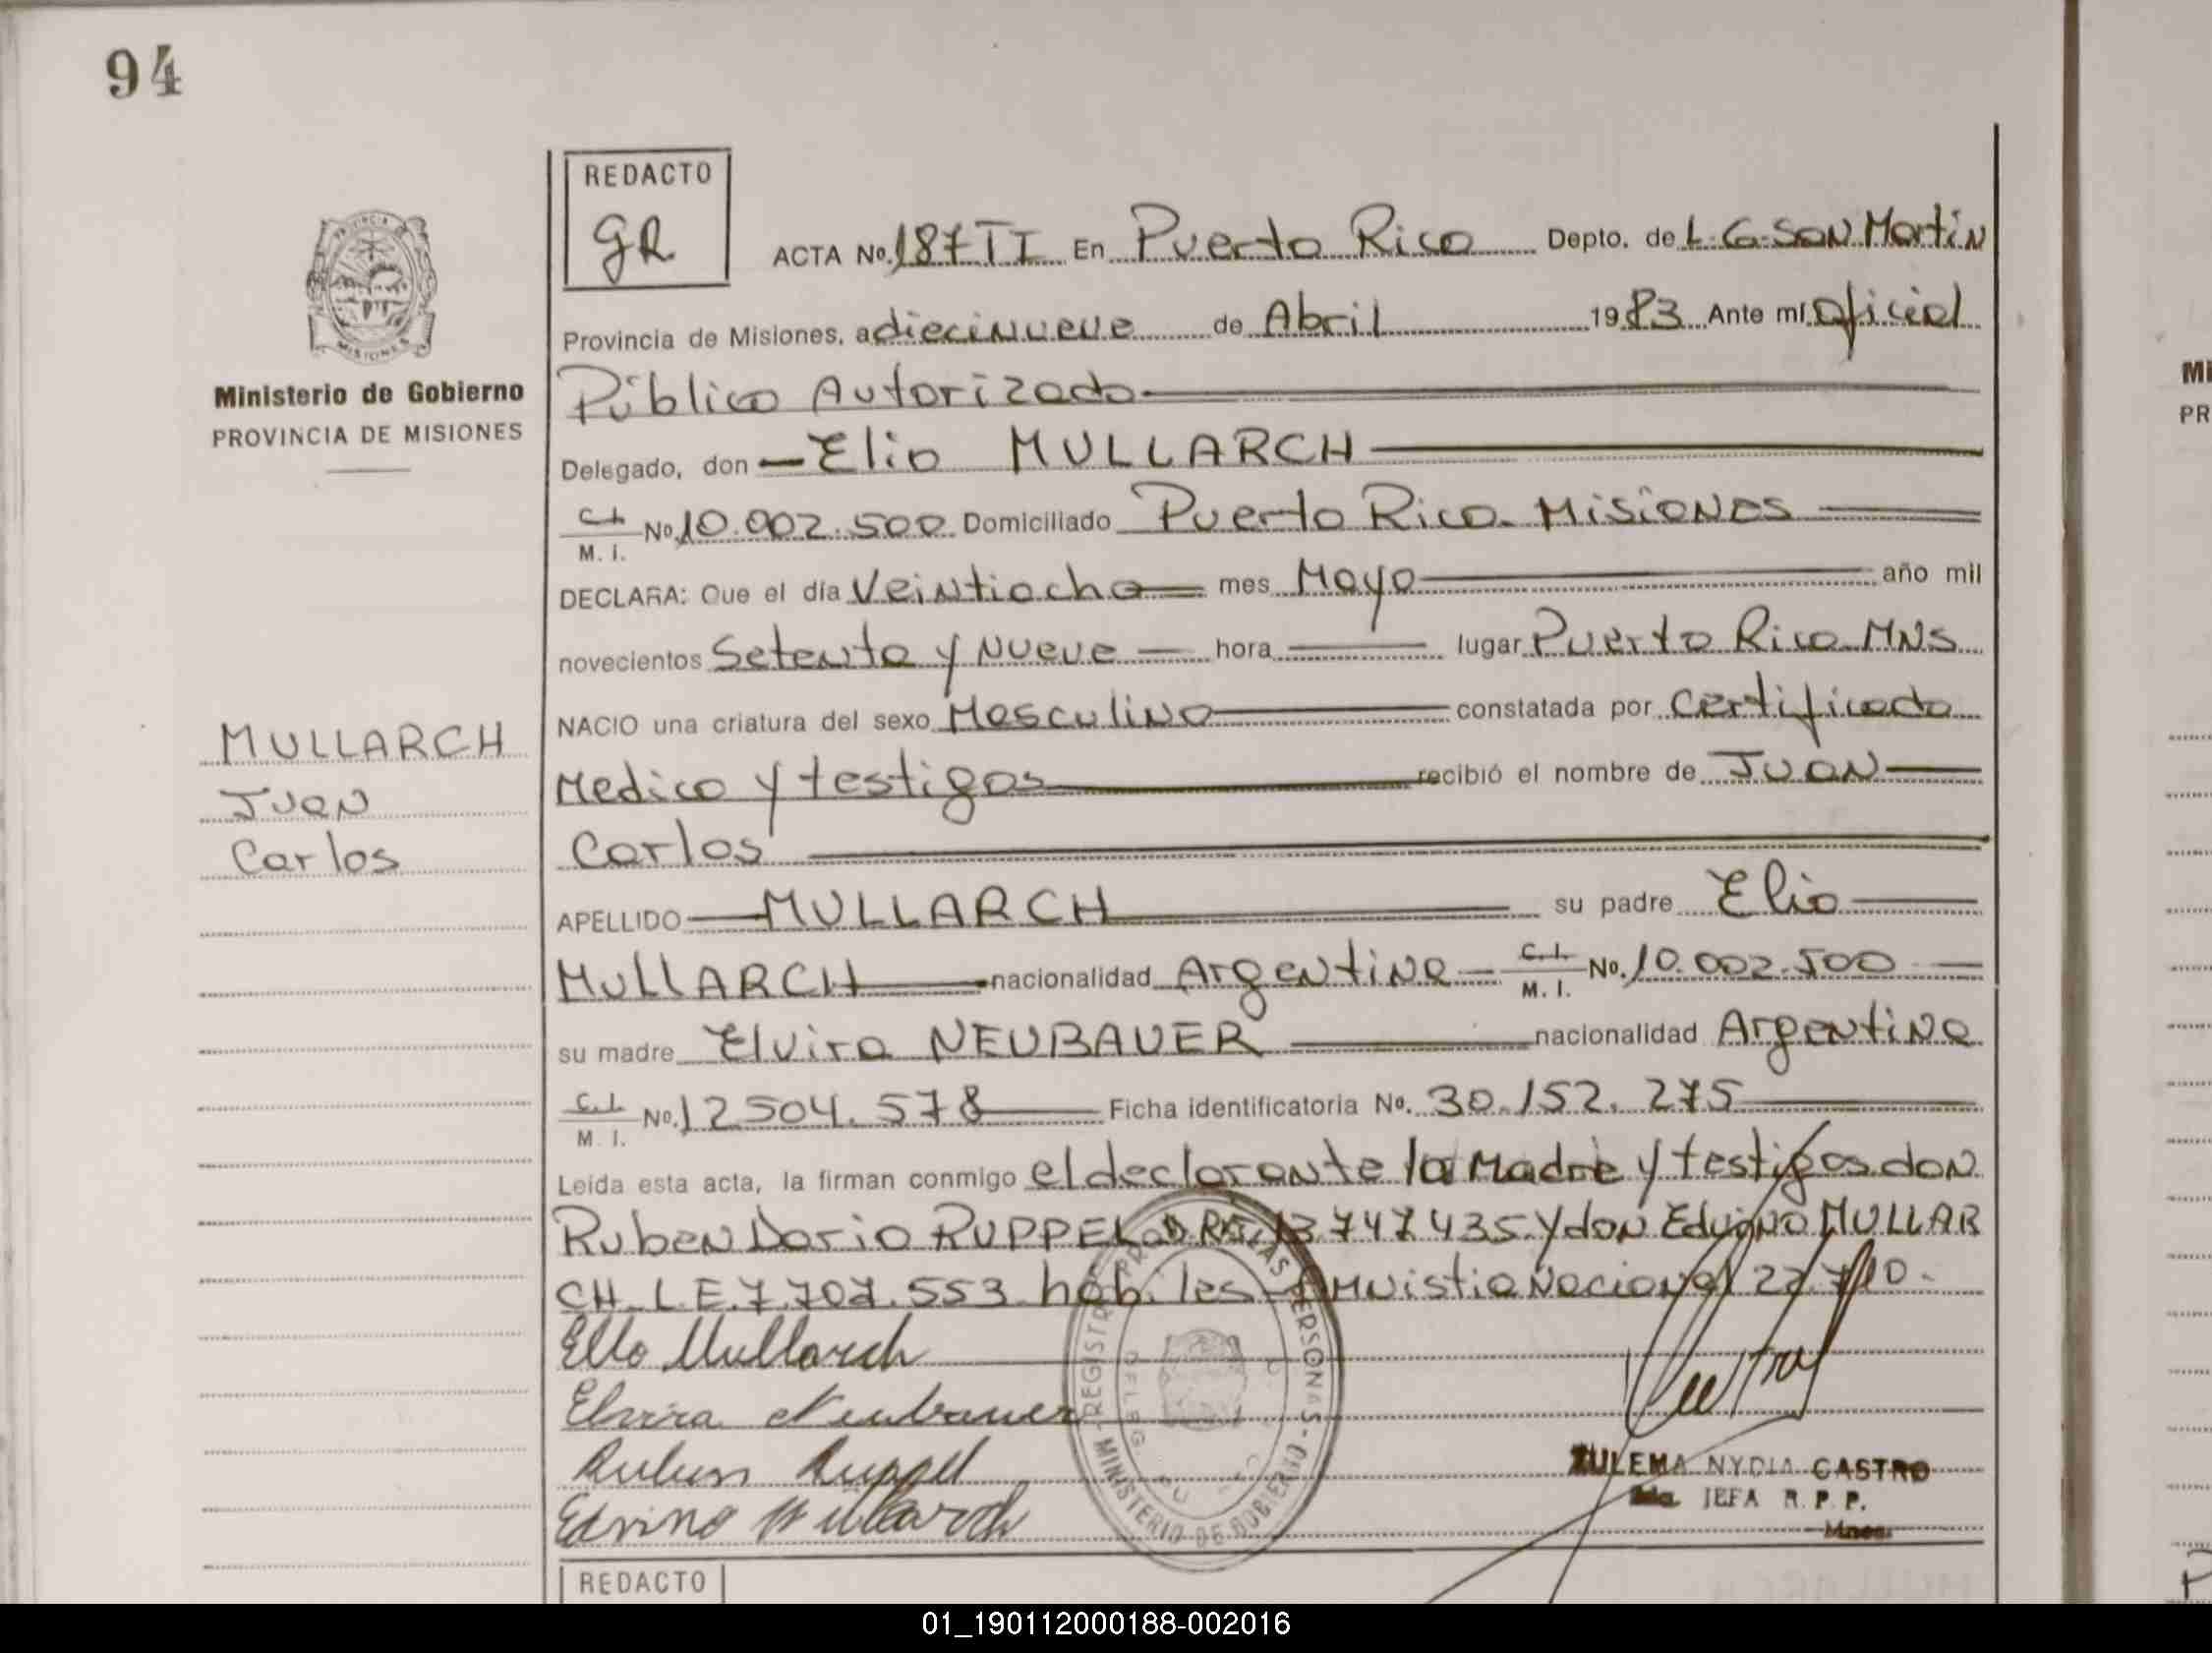 94
REDACTO
GR
ACTA No. 187 TI En Puerto Rico Depto. de L. G. SAN Martin
Provincia de Misiones, a diecinueve de Abril 1983 Ante mí Oficial
Público Autorizado
Ministerio de Gobierno
PROVINCIA DE MISIONES
Delegado, don Elio MULLARCH
C.I. M. I. No. 10.002.500 Domiciliado Puerto Rico. Misiones
DECLARA: Que el día Veintiocho mes Mayo año mil
novecientos Setenta y Nueve hora lugar Puerto Rico MNS
NACIO una criatura del sexo Masculino constatada por Certificado
Medico y testigos recibió el nombre de JUAN
Carlos
MULLARCH
Juan
Carlos
APELLIDO MULLARCH su padre Elio
MULLARCH nacionalidad Argentina C.I. M. I. No. 10.002.500
su madre Elvira NEUBAUER nacionalidad Argentina
C.I. M. I. No. 12504.578 Ficha identificatoria No. 30.152.275
Leida esta acta, la firman conmigo el declarante la Madre y testigos don
Ruben Dario RUPPEL 13.747.435 y don Edvino MULLAR
CH L.E. 7.707.553 hab. les Amnistia Nacional 22.710.
Elio Mullarch
Elvira Neubauer
Ruben Ruppel
Edvino Mullarch
REGISTRO PROV. DE LAS PERSONAS - MINISTERIO DE GOBIERNO
ZULEMA NYDIA CASTRO
JEFA R. P. P.
Mnes.
REDACTO
Mi
PR
01_190112000188-002016